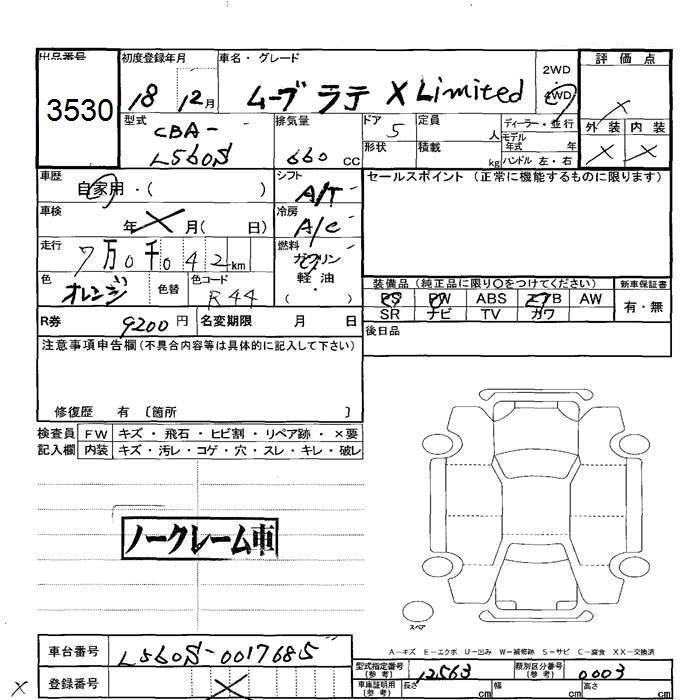 出品番号 初度登録年月 車名・グレード 2WD 評価点
3530 18 12月 ムーブ ラテ X Limited 4WD X
型式 排気量 ドア 定員 ディーラー・並行 外装 内装
CBA- 5 人 モデル
L560S 660 cc 形状 積載 年式 年 X X
kg ハンドル 左・右
車歴 シフト セールスポイント(正常に機能するものに限ります)
自家用・( ) A/T
車検 冷房
年 X 月( 日) A/C
走行 燃料
7万0千042km ガソリン
色 色替 色コード 軽油 装備品(純正品に限り○をつけてください) 新車保証書
オレンジ R44 (・) PS PW ABS エアB AW 有・無
SR ナビ TV カワ
R券 9200円 名変期限 月 日 後日品
注意事項申告欄(不具合内容等は具体的に記入して下さい)
修復歴 有 〔箇所 〕
検査員 FW キズ・飛石・ヒビ割・リペア跡・×要
記入欄 内装 キズ・汚レ・コゲ・穴・スレ・キレ・破レ
ノークレーム車
スペア
A=キズ E=エクボ U=凹み W=補修跡 S=サビ C=腐食 XX=交換済
車台番号 L560S-0017685 型式指定番号(参考) 12563 類別区分番号(参考) 0003
X 登録番号 X 車庫証明用(参考) 長さ cm 幅 cm 高さ cm